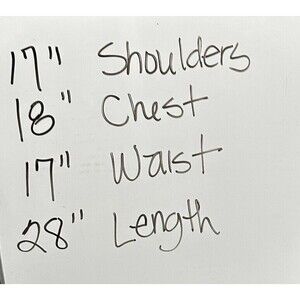 17" Shoulders
18" Chest
17" Waist
28" Length